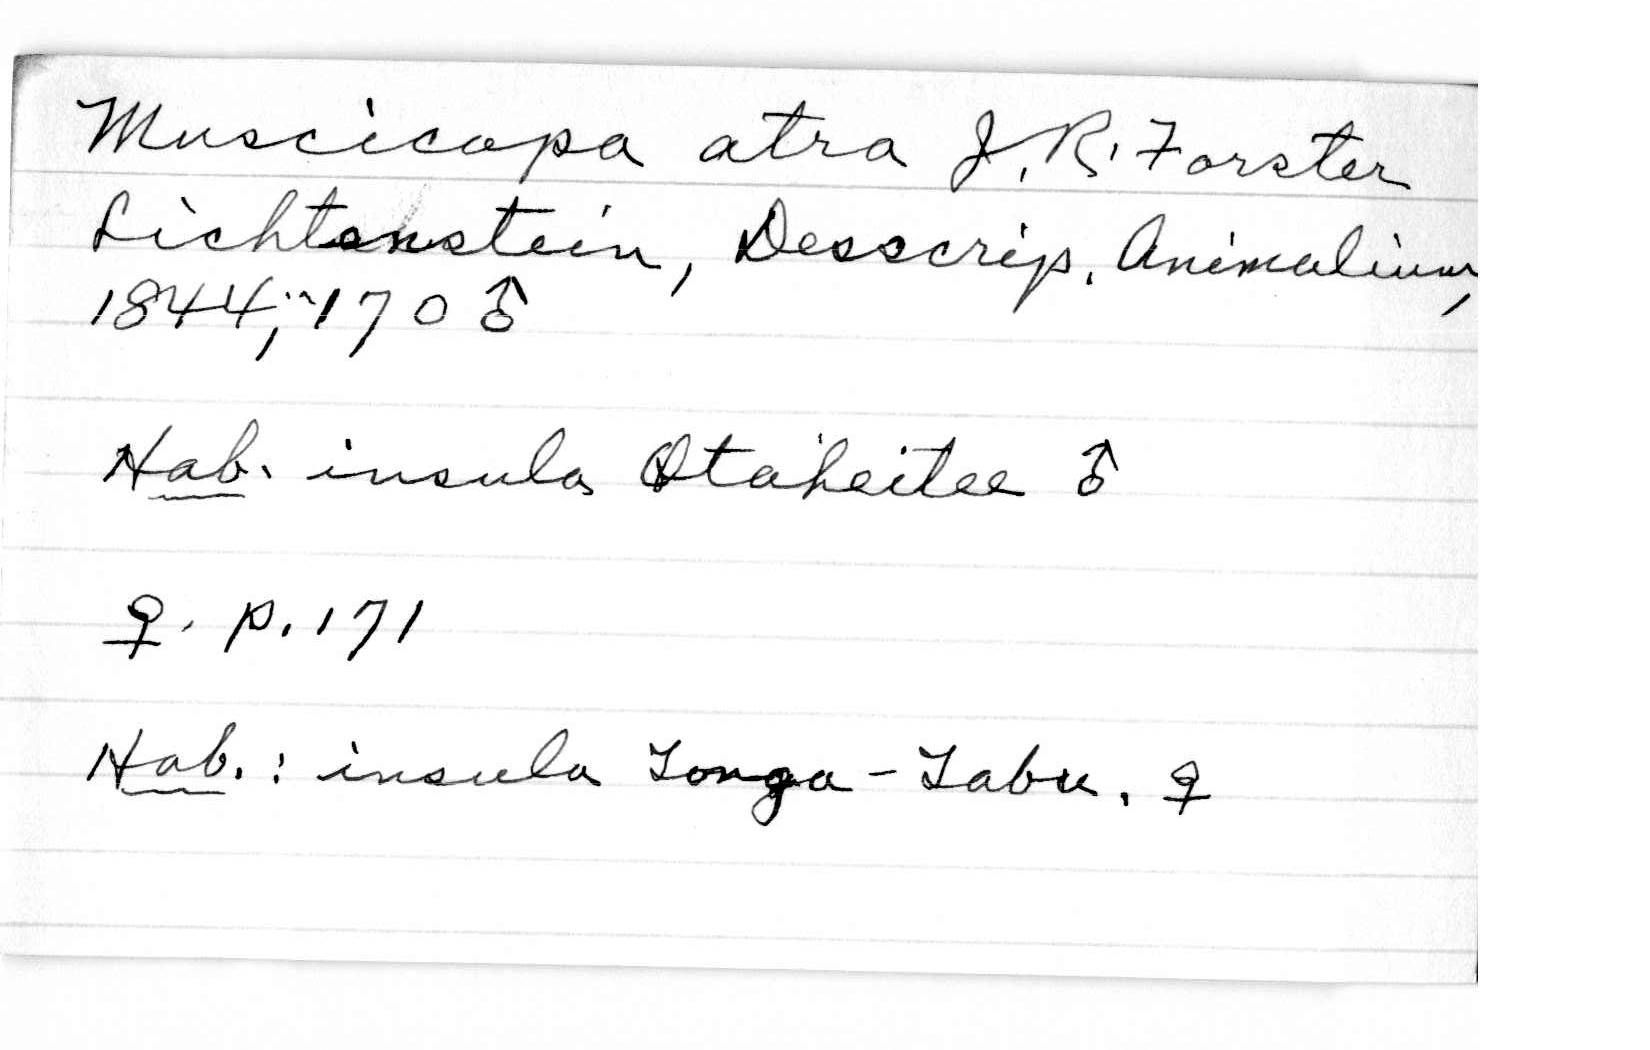 Muscicapa atra J. R. Forster
Lichtenstein, Desscrip. Animalium,
1844, 170 ♂
Hab. insula Otaheitee ♂
♀. p. 171
Hab.: insula Tonga-Tabu. ♀